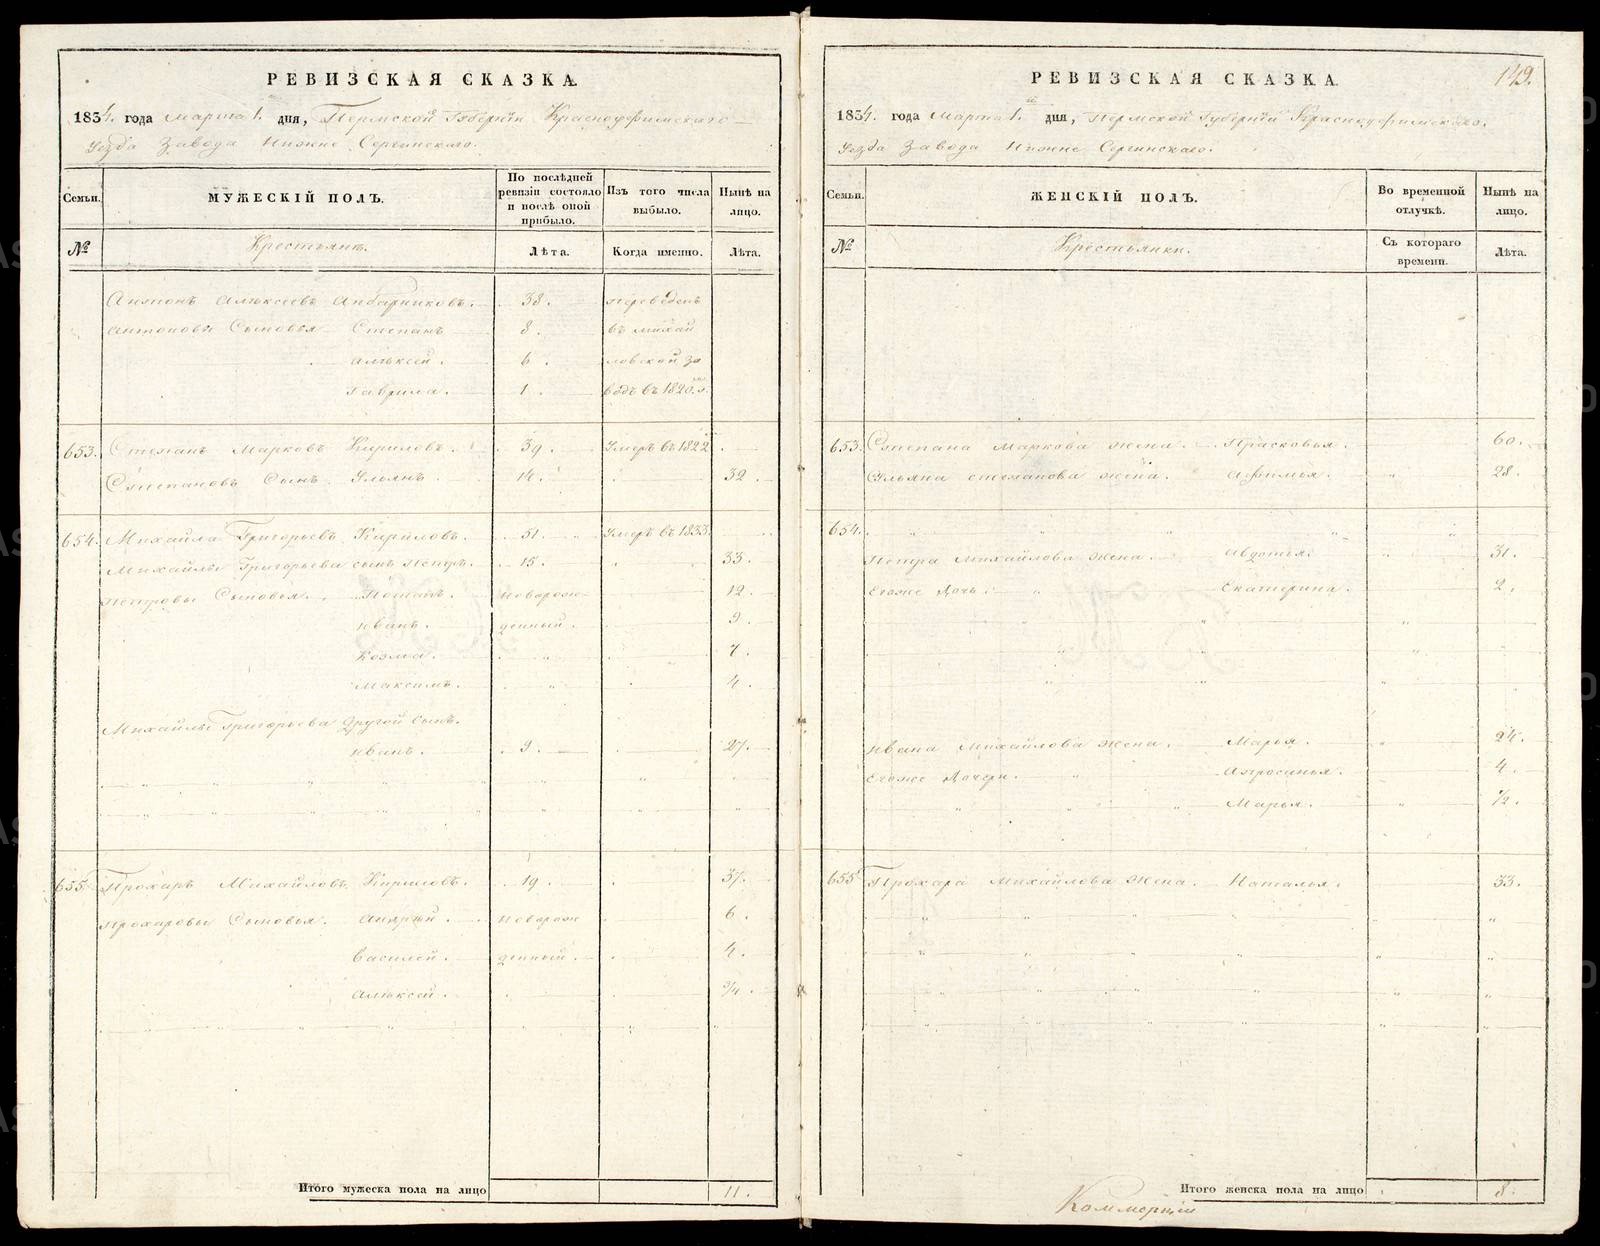 РЕВИЗСКАЯ СКАЗКА.
1834. года Марта 1. дня, Пермской Губернїи Красноуфимскаго
Уезда Завода Нижне Сергинскаго.
Семьи. МУЖЕСКІЙ ПОЛЪ. По послѣдней ревизіи состояло и послѣ оной прибыло. Изъ того числа выбыло. Нынѣ на лицо.
№ Крестьянъ. Лѣта. Когда именно. Лѣта.
Антонъ Алексеевъ Анбарниковъ. 38. переведенъ
Антоновы Сыновья Степанъ 8. въ михай
Алексей. 6. ловской за
Гаврила. 1. водъ въ 1820.
653. Степанъ Марковъ Кириловъ. 39. Умеръ въ 1822
Степановъ Сынъ Ульянъ. 14. 32.
654. Михайла Григорьевъ Кириловъ. 51. Умеръ въ 1833.
Михайлы Григорьева сынъ Петръ. 15. 33.
Петровы Сыновья. новорож- 12.
Иванъ. денный. 9.
Козма. 7.
Максимъ. 4.
Михайлы Григорьева другой сынъ.
Иванъ. 9. 27.
655. Прохаръ Михайловъ Кириловъ. 19. 37.
Прохаровы Сыновья. Андрей. новорож 6.
Василей. денный. 4.
Алексей. 3/4.
Итого мужеска пола на лицо 11.
РЕВИЗСКАЯ СКАЗКА. 149.
1834. года Марта 1. дня, Пермской Губернїи Красноуфимскаго.
Уезда Завода Нижне Сергинскаго.
Семьи. ЖЕНСКІЙ ПОЛЪ. Во временной отлучкѣ. Нынѣ на лицо.
№ Крестьянки. Съ котораго времени. Лѣта.
653. Степана Маркова жена. Прасковья. 60.
Ульяна степанова жена. Афимья. 28.
654.
Петра Михайлова жена. Авдотья. 31.
Егоже Дочь. Екатерина. 2.
Ивана Михайлова жена. Марья. 24.
Егоже Дочери. Апросинья. 4.
Марья. 1/2.
655 Прохара Михайлова жена. Наталья. 33.
Итого женска пола на лицо 8.